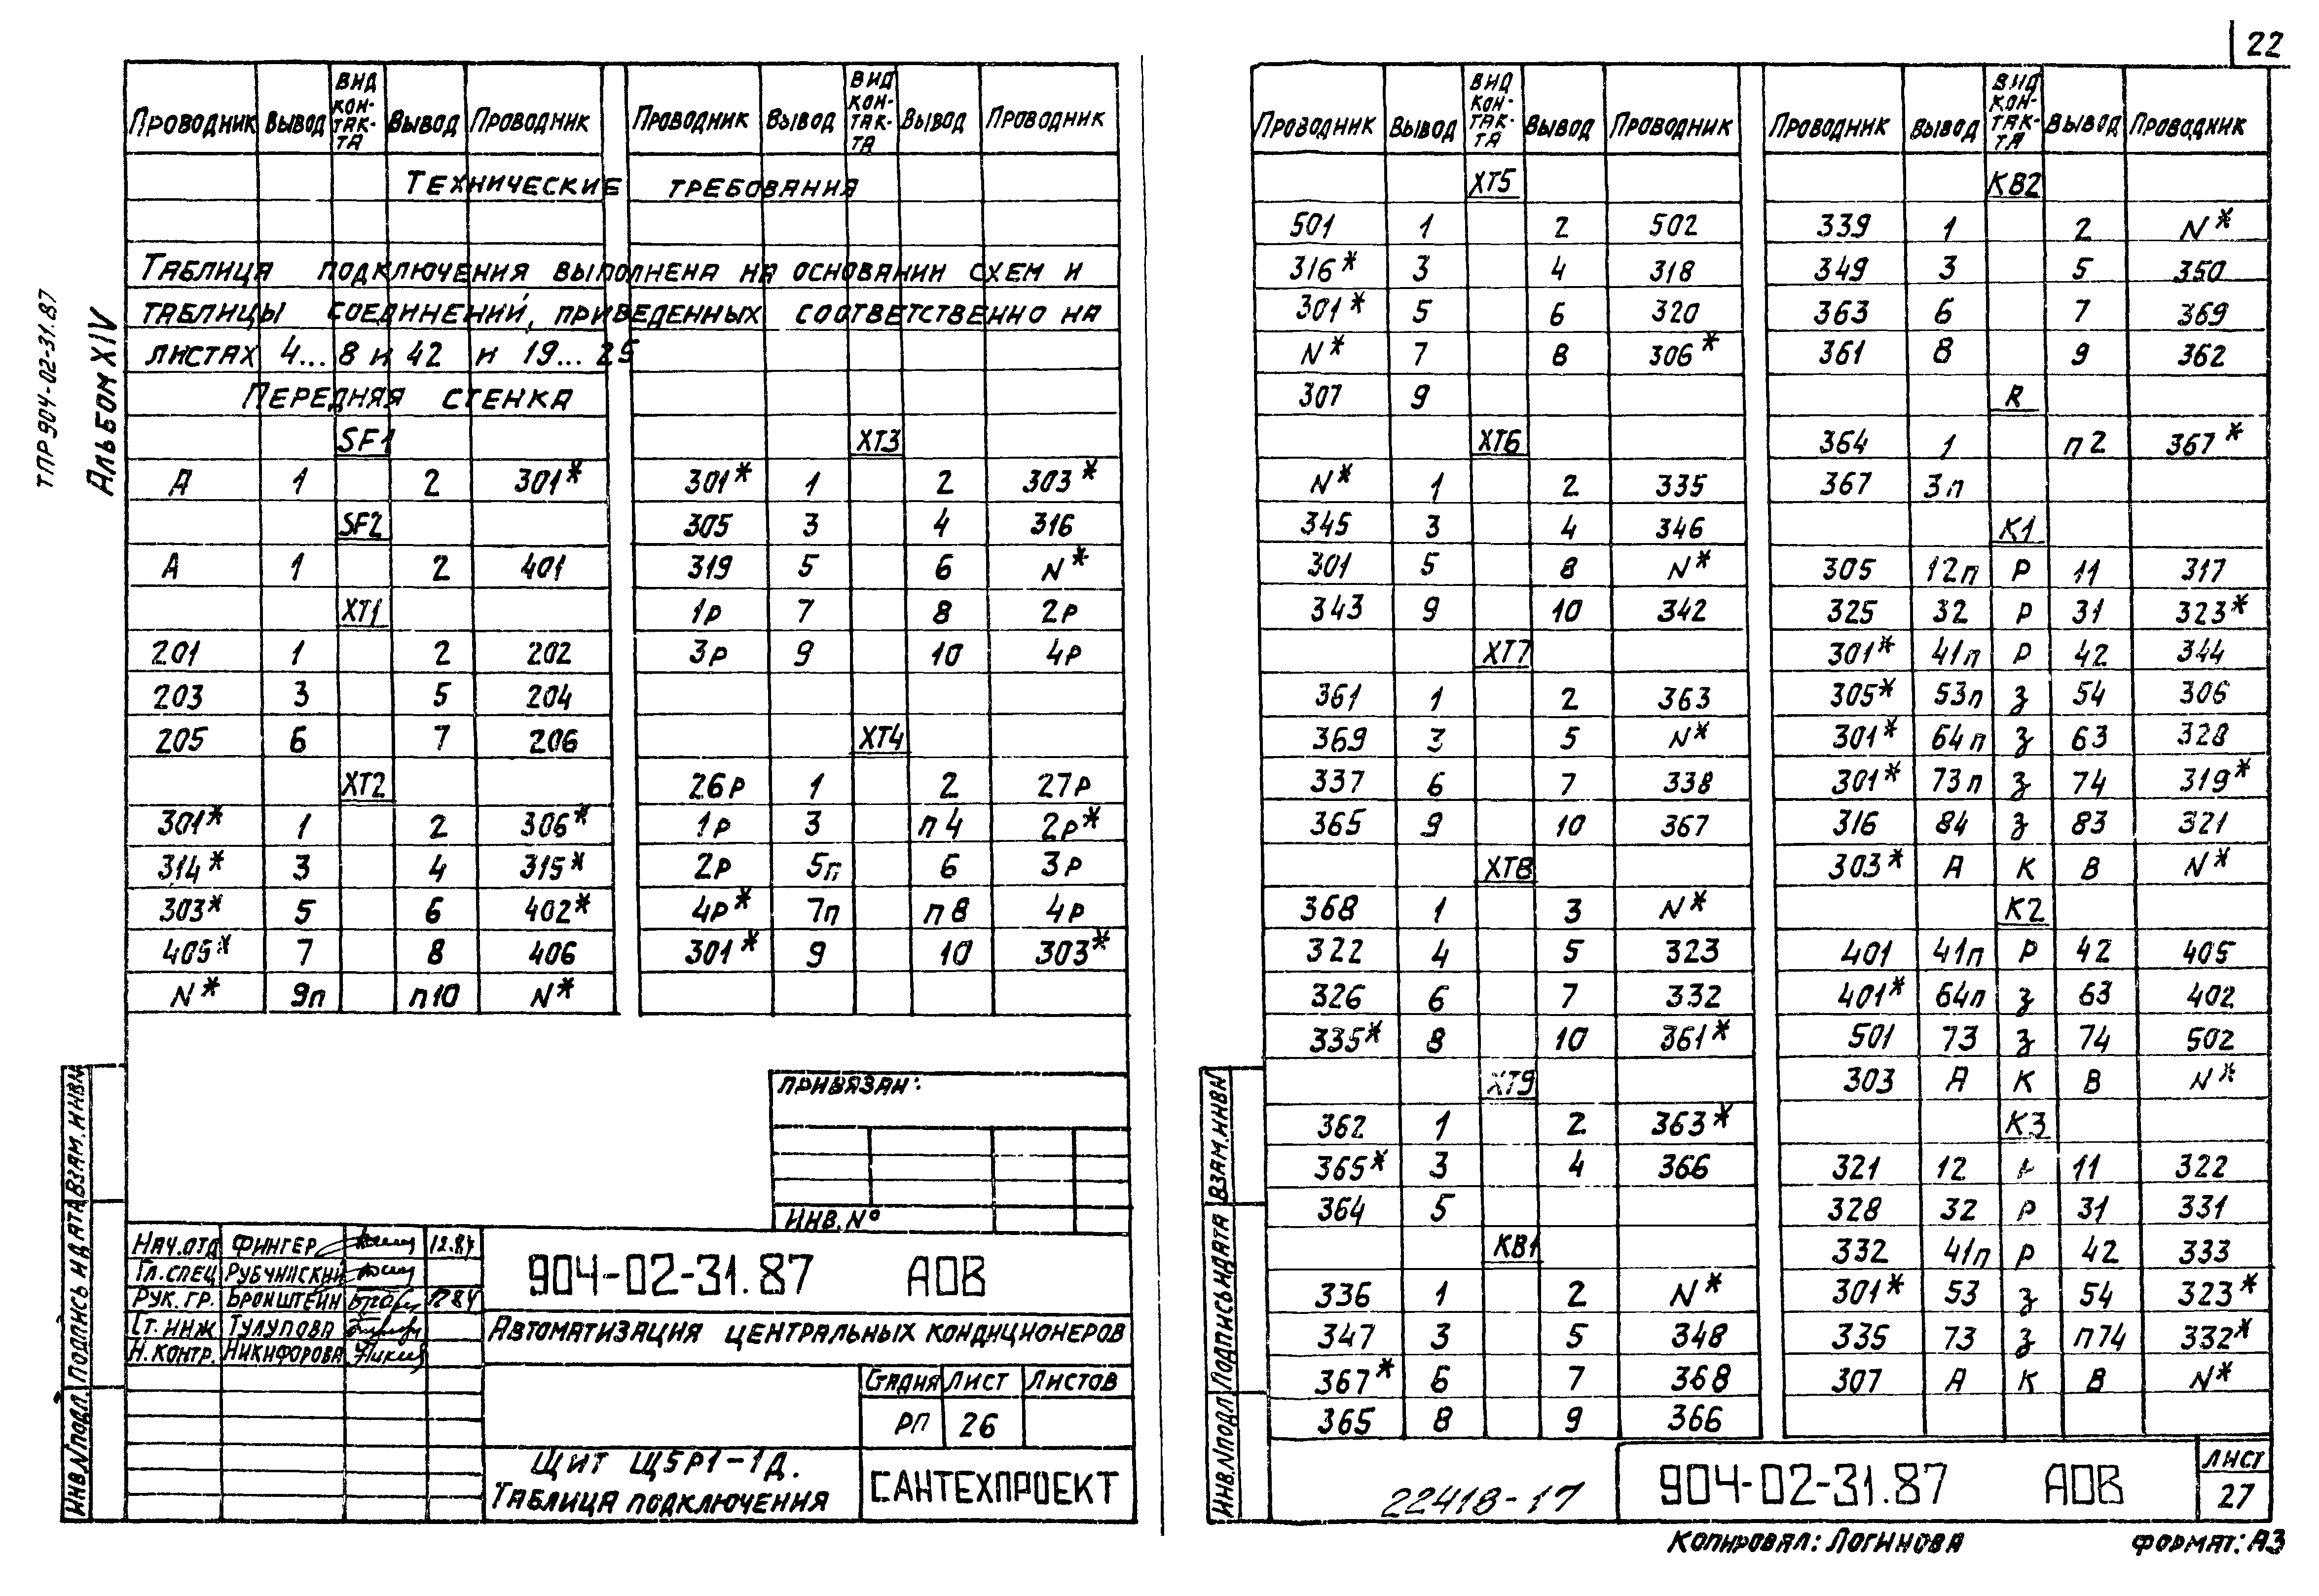 22
ТПР 904-02-31.87
Альбом XIV
Проводник Вывод Вид контакта Вывод Проводник
Технические требования
Таблица подключения выполнена на основании схем и
таблицы соединений, приведенных соответственно на
листах 4...8 и 42 и 19...25
Передняя стенка
SF1
А 1 2 301*
SF2
А 1 2 401
XT1
201 1 2 202
203 3 5 204
205 6 7 206
XT2
301* 1 2 306*
314* 3 4 315*
303* 5 6 402*
405* 7 8 406
N* 9п п10 N*
Проводник Вывод Вид контакта Вывод Проводник
XT3
301* 1 2 303*
305 3 4 316
319 5 6 N*
1Р 7 8 2Р
3Р 9 10 4Р
XT4
26Р 1 2 27Р
1Р 3 п4 2Р*
2Р 5п 6 3Р
4Р* 7п п8 4Р
301* 9 10 303*
Привязан:
Инв. №
Нач.отд Фингер 12.87
Гл.спец Рубчинский
Рук. гр. Бронштейн
Ст. инж Тулупова
Н. контр. Никифорова
904-02-31.87 АОВ
Автоматизация центральных кондиционеров
Стадия Лист Листов
РП 26
Щит Щ5Р1-1Д.
Таблица подключения
САНТЕХПРОЕКТ
Инв.N подл. Подпись и дата Взам.инв.N
Проводник Вывод Вид контакта Вывод Проводник
XT5
501 1 2 502
316* 3 4 318
301* 5 6 320
N* 7 8 306*
307 9
XT6
N* 1 2 335
345 3 4 346
301 5 8 N*
343 9 10 342
XT7
361 1 2 363
369 3 5 N*
337 6 7 338
365 9 10 367
XT8
368 1 3 N*
322 4 5 323
326 6 7 332
335* 8 10 361*
XT9
362 1 2 363*
365* 3 4 366
364 5
КВ1
336 1 2 N*
347 3 5 348
367* 6 7 368
365 8 9 366
Проводник Вывод Вид контакта Вывод Проводник
КВ2
339 1 2 N*
349 3 5 350
363 6 7 369
361 8 9 362
R
364 1 п2 367*
367 3п
К1
305 12п Р 11 317
325 32 Р 31 323*
301* 41п Р 42 344
305* 53п З 54 306
301* 64п З 63 328
301* 73п З 74 319*
316 84 З 83 321
303* А К В N*
К2
401 41п Р 42 405
401* 64п З 63 402
501 73 З 74 502
303 А К В N*
К3
321 12 Р 11 322
328 32 Р 31 331
332 41п Р 42 333
301* 53 З 54 323*
335 73 З п74 332*
307 А К В N*
Инв.N подл Подпись и дата Взам.инв.N
22418-17
904-02-31.87 АОВ
Лист
27
Копировал: Логинова Формат: А3